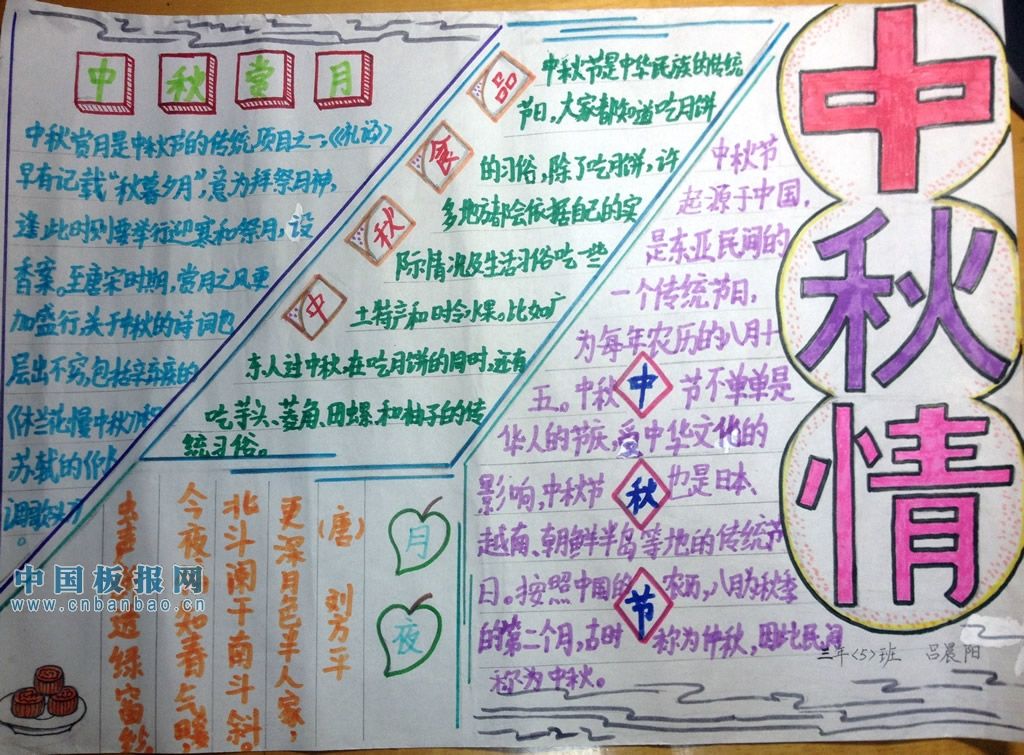 中秋情
中秋赏月
中秋赏月是中秋节的传统项目之一,《礼记》
早有记载“秋暮夕月”,意为拜祭月神,
逢此时则要举行迎寒和祭月,设
香案。至唐宋时期,赏月之风更
加盛行,关于中秋的诗词也
层出不穷,包括辛弃疾的
《木兰花慢中秋》和
苏轼的《水
调歌头》
。
中秋食品
中秋节是中华民族的传统
节日,大家都知道吃月饼
的习俗,除了吃月饼,许
多地方都会依据自己的实
际情况及生活习俗吃一些
土特产和时令水果。比如广
东人过中秋,在吃月饼的同时,还有
吃芋头、菱角、田螺和柚子的传
统习俗。
中秋节
中秋节
起源于中国,
是东亚民间的
一个传统节日,
为每年农历的八月十
五。中秋节不单单是
华人的节庆,受中华文化的
影响,中秋节也是日本、
越南、朝鲜半岛等地的传统节
日。按照中国的农历,八月为秋季
的第二个月,古时称为仲秋,因此民间
称为中秋。
月夜
(唐) 刘方平
更深月色半人家,
北斗阑干南斗斜。
今夜知春气暖,
虫声透绿窗纱
三年<5>班 吕晨阳
中国板报网
www.cnbanbao.cn